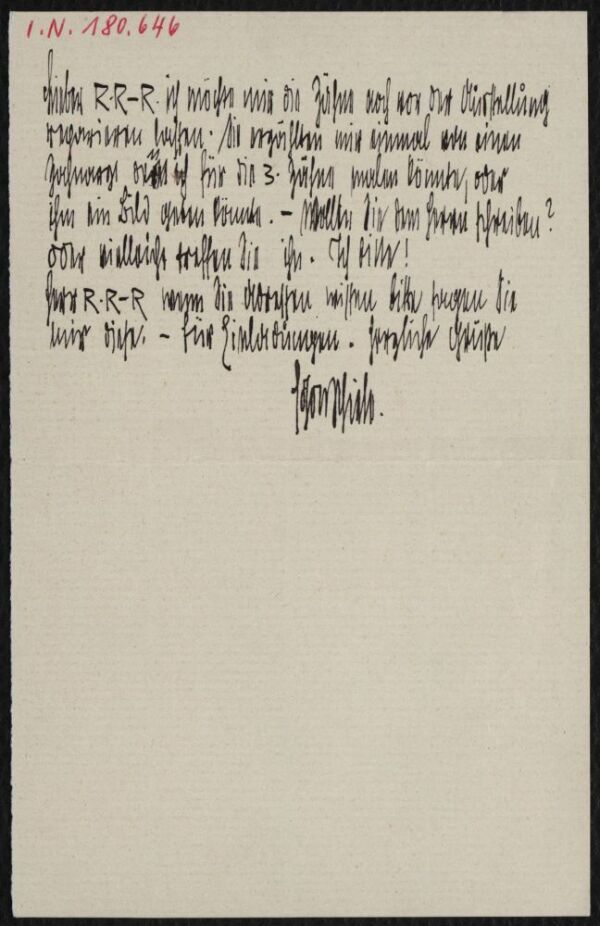 I.N. 180.646
Lieber R.R-R. ich möchte mir die Zähne noch vor der Ausstellung
reparieren lassen. Sie erzählten mir einmal von einen
Zahnarzt ich für die 3. Zähne malen könnte, oder
ihm ein Bild geben könnte. – Wollten Sie dem Herrn schreiben?
oder vielleicht treffen Sie ihn. Ich bitte!
Herr R.R-R wenn Sie Adressen wissen bitte sagen Sie
mir diese. – für Einladungen. herzliche Grüße
Egon Schiele.